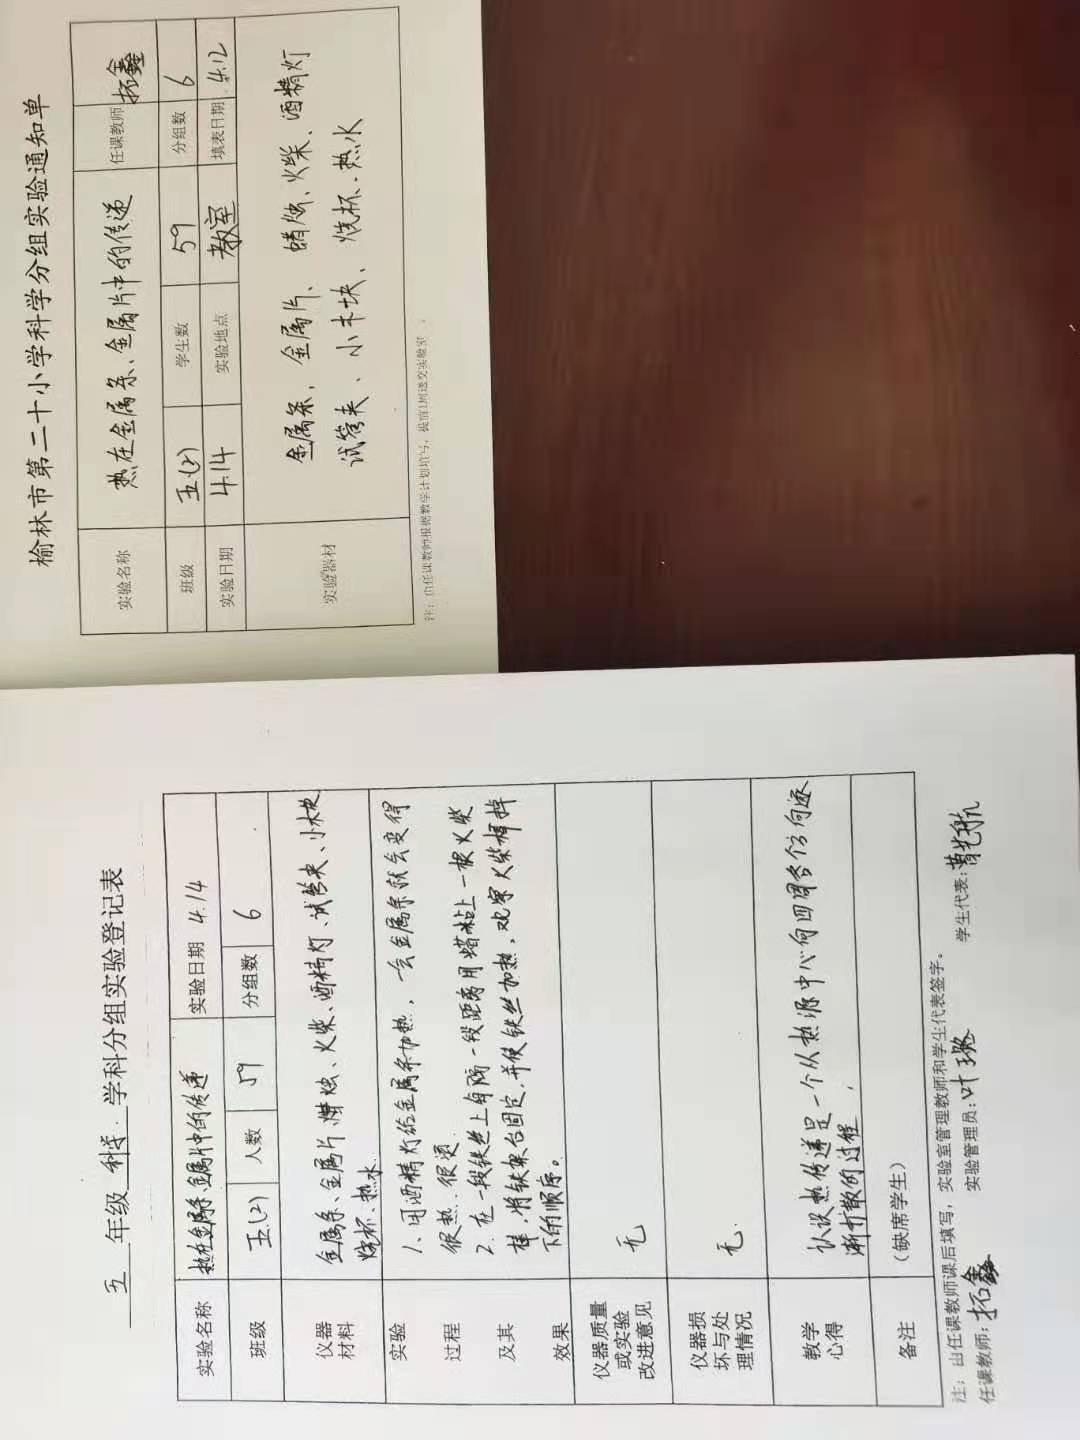 榆林市第二十小学科学分组实验通知单
实验名称 热在金属条、金属片中的传递 任课教师 拓鑫
班级 五(2) 学生数 59 分组数 6
实验日期 4.14 实验地点 教室 填表日期 4.12
实验器材 金属条、金属片、蜡烛、火柴、酒精灯
试管夹、小木块、烧杯、热水
注：由任课教师根据教学计划填写，提前1周送交实验室。
五 年级 科学 学科分组实验登记表
实验名称 热在金属条、金属片中的传递 实验日期 4.14
班级 五(2) 人数 59 分组数 6
仪器材料 金属条、金属片、蜡烛、火柴、酒精灯、试管夹、小木块
烧杯、热水
实验过程及其效果 1、用酒精灯给金属条加热，一会金属条就会变得
很热、很烫
2、在一段铁丝上每隔一段距离用蜡粘上一根火柴
棒，将铁架台固定，并使铁丝加热，观察火柴棒掉
下的顺序。
仪器质量或实验改进意见 无
仪器损坏与处理情况 无
教学心得 认识热传递是一个从热源中心向四周各方向逐
渐扩散的过程
备注 （缺席学生）
注：由任课教师课后填写，实验室管理教师和学生代表签字。
任课教师：拓鑫 实验管理员：叶 学生代表：曹艺航